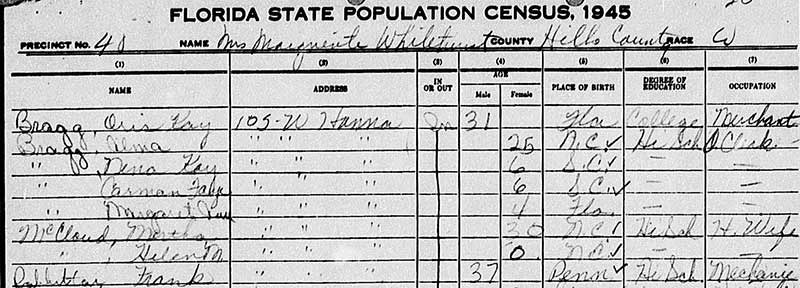 FLORIDA STATE POPULATION CENSUS, 1945
PRECINCT No. 40 NAME Mrs Marguerite COUNTY Hills County RACE W
(1) (2) (3) (4) (5) (6) (7)
NAME ADDRESS IN OR OUT AGE Male Female PLACE OF BIRTH DEGREE OF EDUCATION OCCUPATION
Bragg, Oris Kay 105-W Hanna In 31 Fla College Merchant
Bragg, Alma " " " 25 N.C. Hi Sch Clerk
" Nena Kay " " " 6 S.C. — —
" Carman Faye " " " 6 S.C. — —
" Margaret " " " 4 Fla. — —
McCloud, Martha " " " 30 N.C. Hi Sch H. Wife
" Helen M " " " 0 N.C. — —
Frank " " " 37 Penn Hi Sch. Mechanic